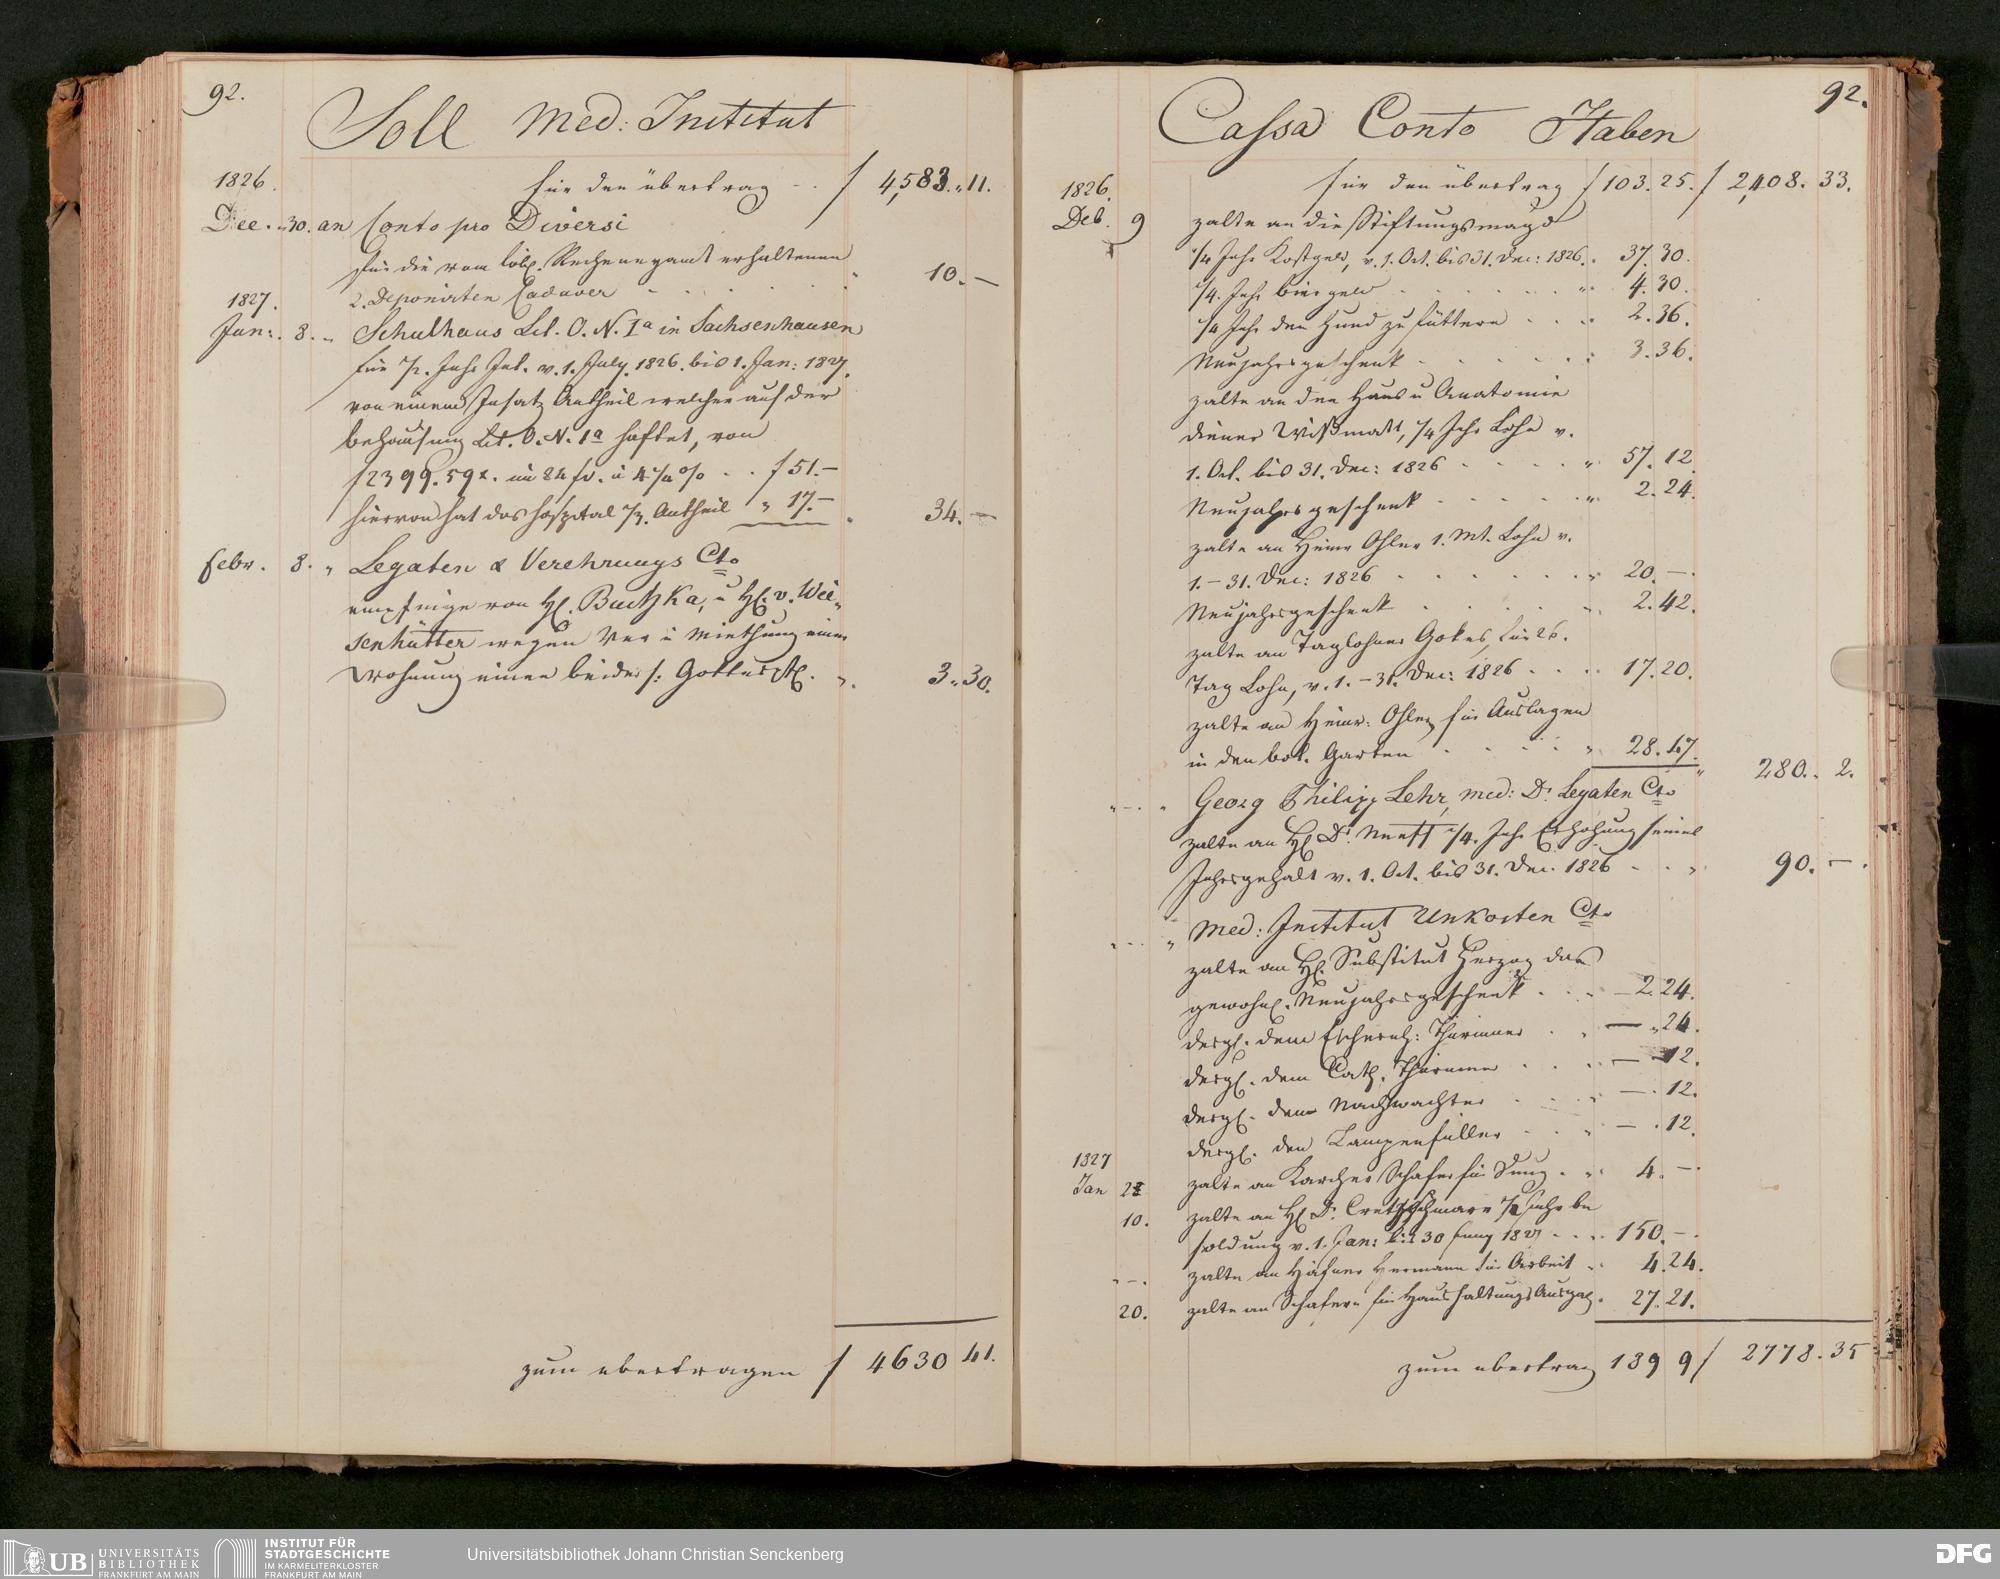 92.
Soll Med: Institut
1826.
für den übertrag f 4,583.„11.
Dec. „30. an Conto pro Diversi
für die vom löbl. Recheneyamt erhaltenen
2. Deponirten Cadaver „ 10.—
1827.
Jan:. 8. „ Schulhaus Lit. O. N. 1a in Sachsenhausen
für ½. Jahr Int. v. 1. July. 1826. bis 1. Jan: 1827.
von einem Insatz Antheil welcher auf der
behausung Lit. O. N. 1a haftet, von
f 2399.59x. im 24 fl. à 4¼ % . . f 51.—
hiervon hat das Hospital ⅓. Antheil „ 17.— „ 34.—
Febr. 8. „ Legaten & Verehrungs Cto
empfinge von H. Butzka, u H. v. Wei„
senhütter wegen Ver u Miethung einer
Wohnung einen beiders: Gottes „ 3„30.
zum übertragen f 4630 41.
92.
Cassa Conto Haben
1826.
für den übertrag f 103.25. f 2,408. 33.
Deb. 9 zalte an die Stiftungsmagd
¼ Jahr Kostgeld, v. 1. Oct. bis 31. Dec: 1826. „ 37.30.
¼. Jahr biergeld „ 4.30.
¼ Jahr den Hund zu füttern 2.36.
Neujahrsgeschenk 3.36.
zalte an den Haus u Anatomie
diener Wißmatt, ¼ Jahr Lohn v.
1. Oct. bis 31. Dec: 1826 „ 57.12
Neujahrsgeschenk „ 2.24.
zalte an Heinr Ohler 1. Mt. Lohn v.
1.–31. Dec: 1826 „ 20.—
Neujahrsgeschenk 2.42.
zalte an Taglohner Gokes, für 26.
Tag Lohn, v. 1.–31. Dec: 1826 17.20.
zalte an Heinr: Ohler für Auslagen
in den bot. Garten „ 28.47.
„ 280. 2.
„ — „ Georg Philipp Lehr, med: Dr. Legaten Cto
zalte an H Dr. Neeff ¼. Jahr Erhöhung seines
Jahrsgehalt v. 1. Oct. bis 31. Dec. 1826 „ 90.—.
„ Med: Institut Unkosten Cto
zalte an H. Substitut Herzog das
gewohnl. Neujahrsgeschenk — 2.24.
dergl. dem Thürmer — „24.
dergl. dem Cath. Thürmer — 12.
dergl. dem Nachtwachter —. 12.
dergl. den Lampenfüller — . 12.
1827
Jan 2 zalte an Karcher Schafer für Dung „ 4.—
10. zalte an H Dr. Cretzschmar ½ Jahr be
soldung v. 1. Jan: bis 30 Juny 1827 150.—.
„—. zalte an Häfner Hermann für Arbeit 4.24.
20. zalte an Schafern für Haushaltungs Ausgab. 27.21.
zum übertrag 189 9 f 2778.35
UB UNIVERSITÄTS
BIBLIOTHEK
FRANKFURT AM MAIN
INSTITUT FÜR
STADTGESCHICHTE
IM KARMELITERKLOSTER
FRANKFURT AM MAIN
Universitätsbibliothek Johann Christian Senckenberg
DFG